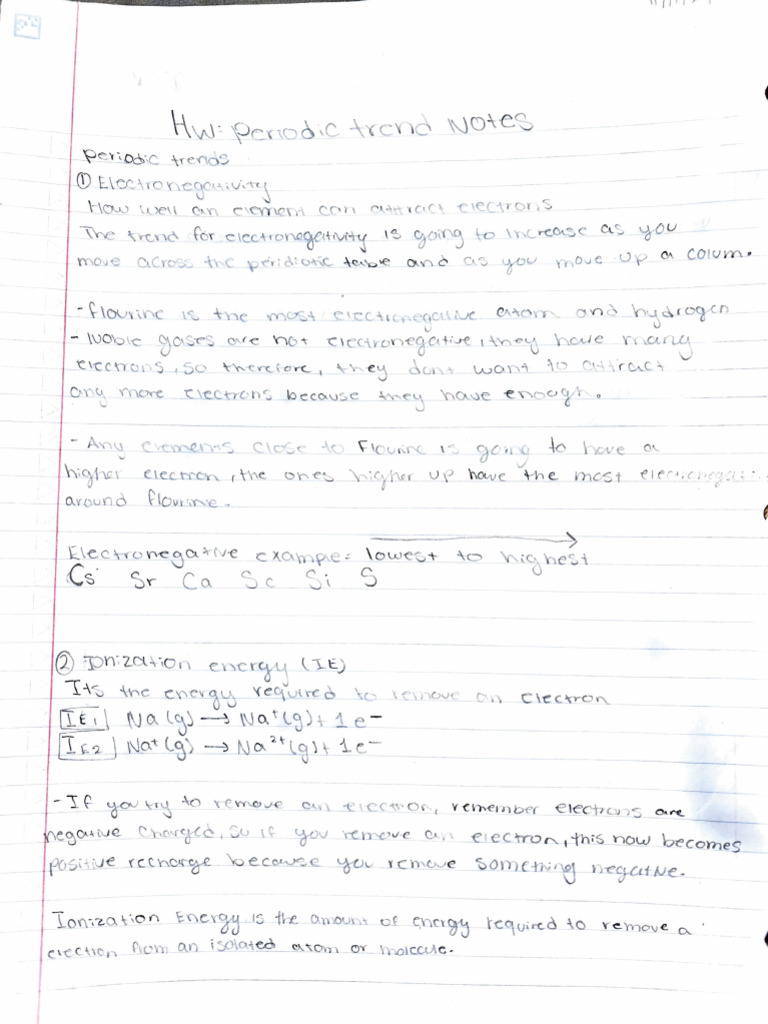 HW: periodic trend Notes
periodic trends
① Electronegativity
How well an element can attract electrons
The trend for electronegativity is going to increase as you
move across the peridiotic table and as you move up a colum.
- flourine is the most electronegative atom and hydrogen
- Noble gases are not electronegative, they have many
electrons, so therefore, they dont want to attract
any more electrons because they have enough.
- Any elements close to Flourine is going to have a
higher electron, the ones higher up have the most
around flourine.
Electronegative example: lowest to highest
Cs Sr Ca Sc Si S
② Ionization energy (IE)
Its the energy required to remove an electron
IE1 Na (g) → Na⁺(g) + 1e-
IE2 Na⁺(g) → Na²⁺(g) + 1e-
- If you try to remove an electron, remember electrons are
negative charged, so if you remove an electron, this now becomes
positive recharge because you remove something negative.
Ionization Energy is the amount of energy required to remove a
electron from an isolated atom or molecule.